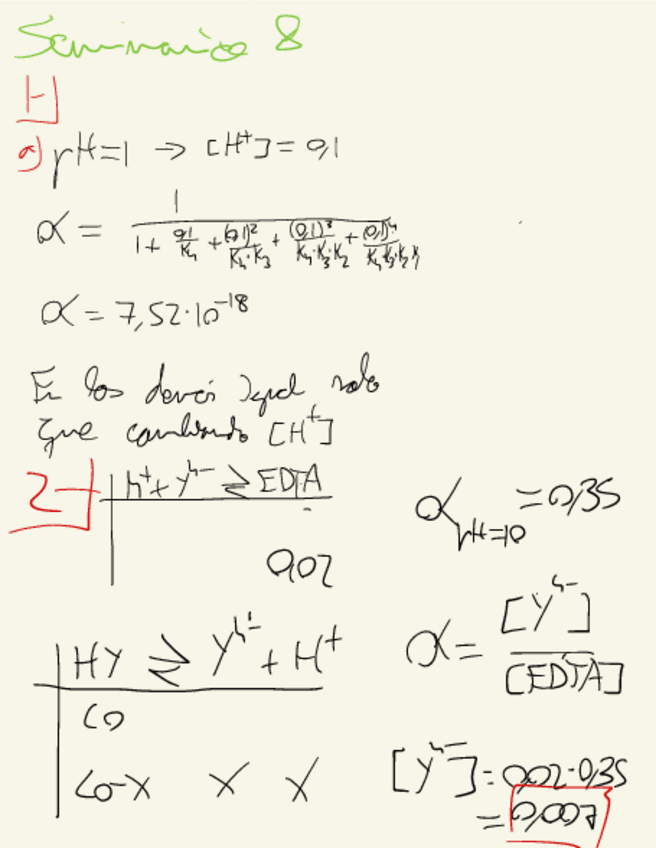 Seminario 8
1-
a) pH=1 → [H⁺] = 0,1
α = 1 / (1 + 0,1/K₄ + (0,1)²/K₄·K₃ + (0,1)³/K₄·K₃·K₂ + (0,1)⁴/K₄·K₃·K₂·K₁)
α = 7,52·10⁻¹⁸
En los demás igual solo
que cambiando [H⁺]
2-
h⁺ + Y⁴⁻ ⇄ EDTA
0,02
α pH=10 = 0,35
HY ⇄ Y⁴⁻ + H⁺
C0
C0-X X X
α = [Y⁴⁻] / [EDTA]
[Y⁴⁻] = 0,02·0,35
= 0,007